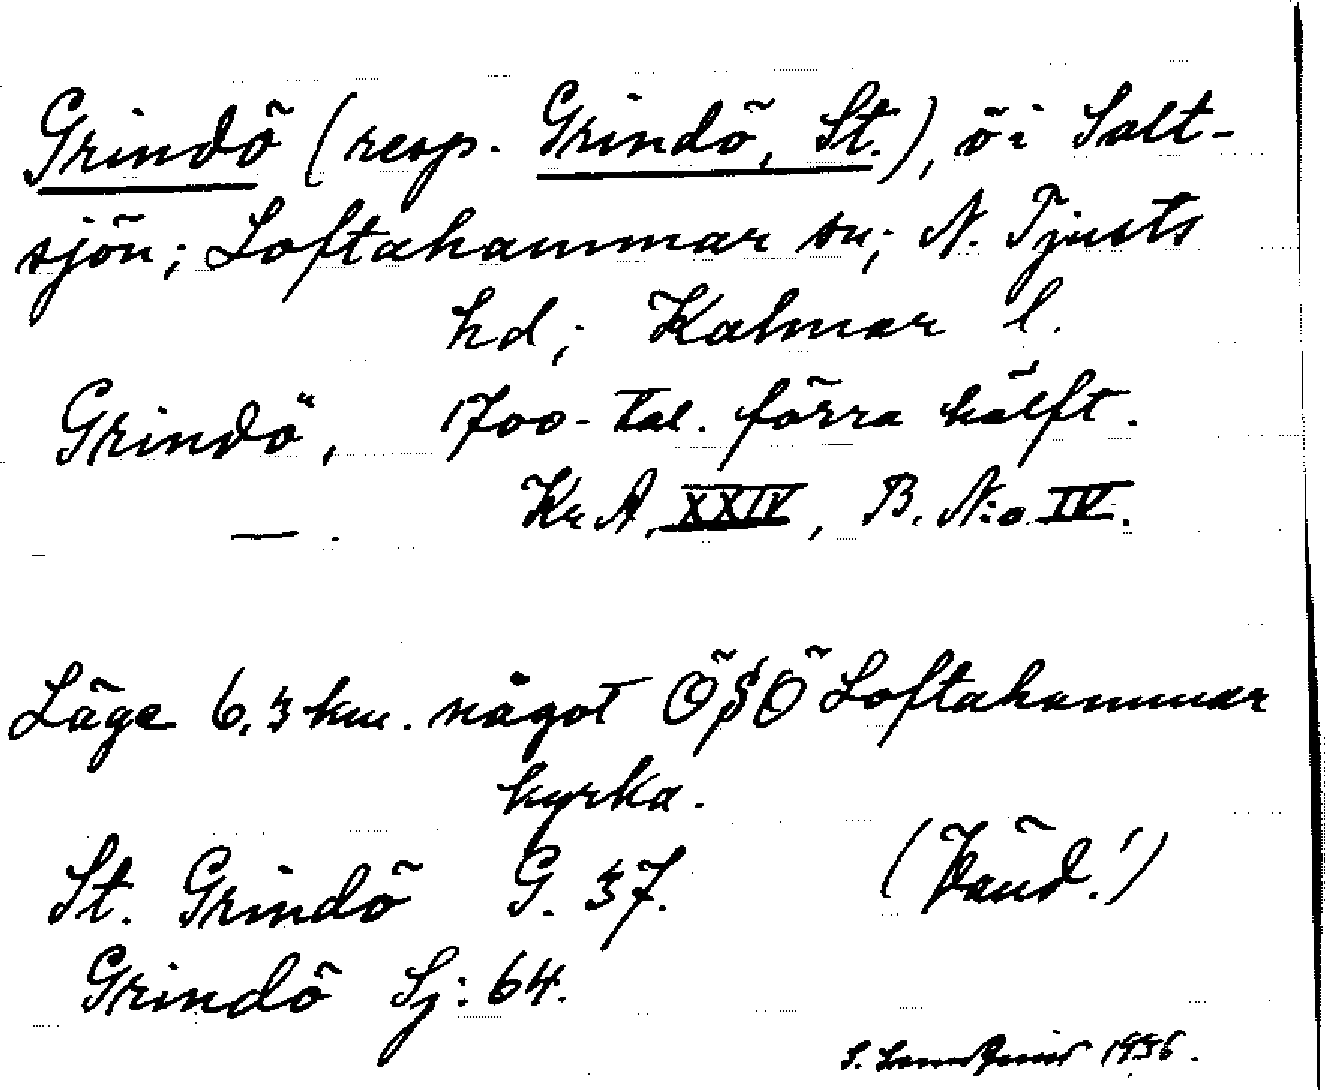 Grindö (resp. Grindö, St.), ö i Salt-
sjön; Loftahammar sn; N. Tjusts
hd; Kalmar l.
Grindö, 1700-tal. förra hälft.
—. Kr. A. XXIV, B. N:o IV.
Läge 6,3 km. något ÖSÖ Loftahammar
kyrka.
St. Grindö G. 37. (Vänd!)
Grindö Sj: 64.
S. 1936.